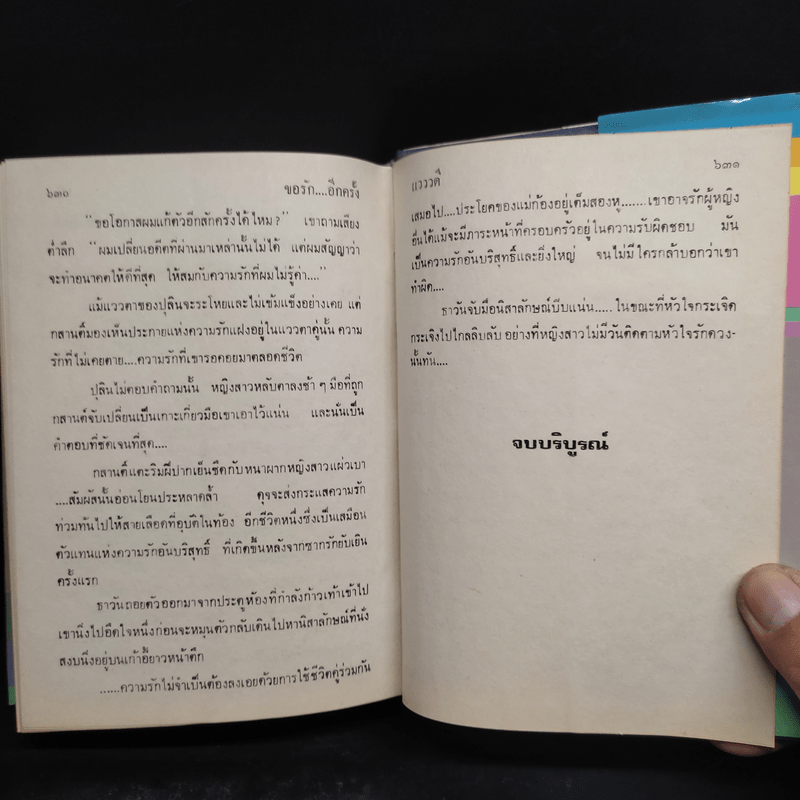 ๖๓๐ ขอรัก....อีกครั้ง
"ขอโอกาสผมแก้ตัวอีกสักครั้งได้ไหม?" เขาถามเสียง
ต่ำลึก "ผมเปลี่ยนอดีตที่ผ่านมาเหล่านั้นไม่ได้ แต่ผมสัญญาว่า
จะทำอนาคตให้ดีที่สุด ให้สมกับความรักที่ผมไม่รู้ค่า...."
แม้แววตาของปุลินจะระโหยและไม่เข้มแข็งอย่างเคย แต่
กสานติ์มองเห็นประกายแห่งความรักแฝงอยู่ในแววตาคู่นั้น ความ
รักที่ไม่เคยตาย....ความรักที่เขารอคอยมาตลอดชีวิต
ปุลินไม่ตอบคำถามนั้น หญิงสาวหลับตาลงช้า ๆ มือที่ถูก
กสานต์จับเปลี่ยนเป็นเกาะเกี่ยวมือเขาเอาไว้แน่น และนั่นเป็น
คำตอบที่ชัดเจนที่สุด....
กสานติ์แตะริมฝีปากเย็นชืดกับหน้าผากหญิงสาวแผ่วเบา
....สัมผัสนั้นอ่อนโยนประหลาดล้ำ ดุจจะส่งกระแสความรัก
ท่วมท้นไปให้สายเลือดที่อุบัติในท้อง อีกชีวิตหนึ่งซึ่งเป็นเสมือน
ตัวแทนแห่งความรักอันบริสุทธิ์ ที่เกิดขึ้นหลังจากซากรักยับเยิน
ครั้งแรก
ธาวันถอยตัวออกมาจากประตูห้องที่กำลังก้าวเท้าเข้าไป
เขานิ่งไปอึดใจหนึ่งก่อนจะหมุนตัวกลับเดินไปหานิสาลักษณ์ที่นั่ง
สงบนิ่งอยู่บนเก้าอี้ยาวหน้าตึก
......ความรักไม่จำเป็นต้องลงเอยด้วยการใช้ชีวิตคู่ร่วมกัน
แวววดี ๖๓๑
เสมอไป....ประโยคของแม่ก้องอยู่เต็มสองหู.......เขาอาจรักผู้หญิง
อื่นได้แม้จะมีภาระหน้าที่ครอบครัวอยู่ในความรับผิดชอบ มัน
เป็นความรักอันบริสุทธิ์และยิ่งใหญ่ จนไม่มีใครกล้าบอกว่าเขา
ทำผิด....
ธาวันจับมือนิสาลักษณ์บีบแน่น.....ในขณะที่หัวใจกระเจิด
กระเจิงไปไกลลิบลับ อย่างที่หญิงสาวไม่มีวันติดตามหัวใจรักดวง-
นั้นทัน....
จบบริบูรณ์